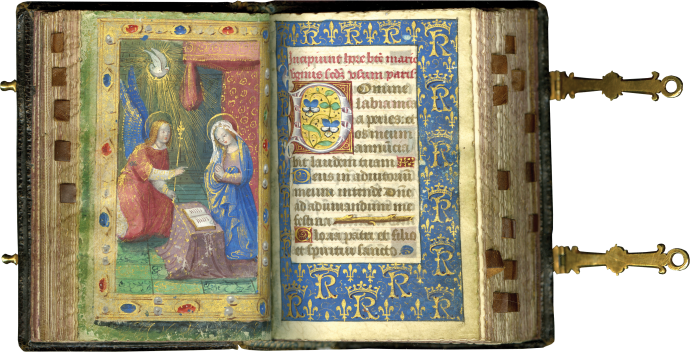 Incipiunt hore bte marie
virginis scdm usum paris
Domine
labia mea
aperies et
os meum
annūcia
bit laudem tuam
Deus in adiutoriū
meum intende Dñe
ad adiuvandum me
festina
Gloria patri et filio
et spiritui sancto